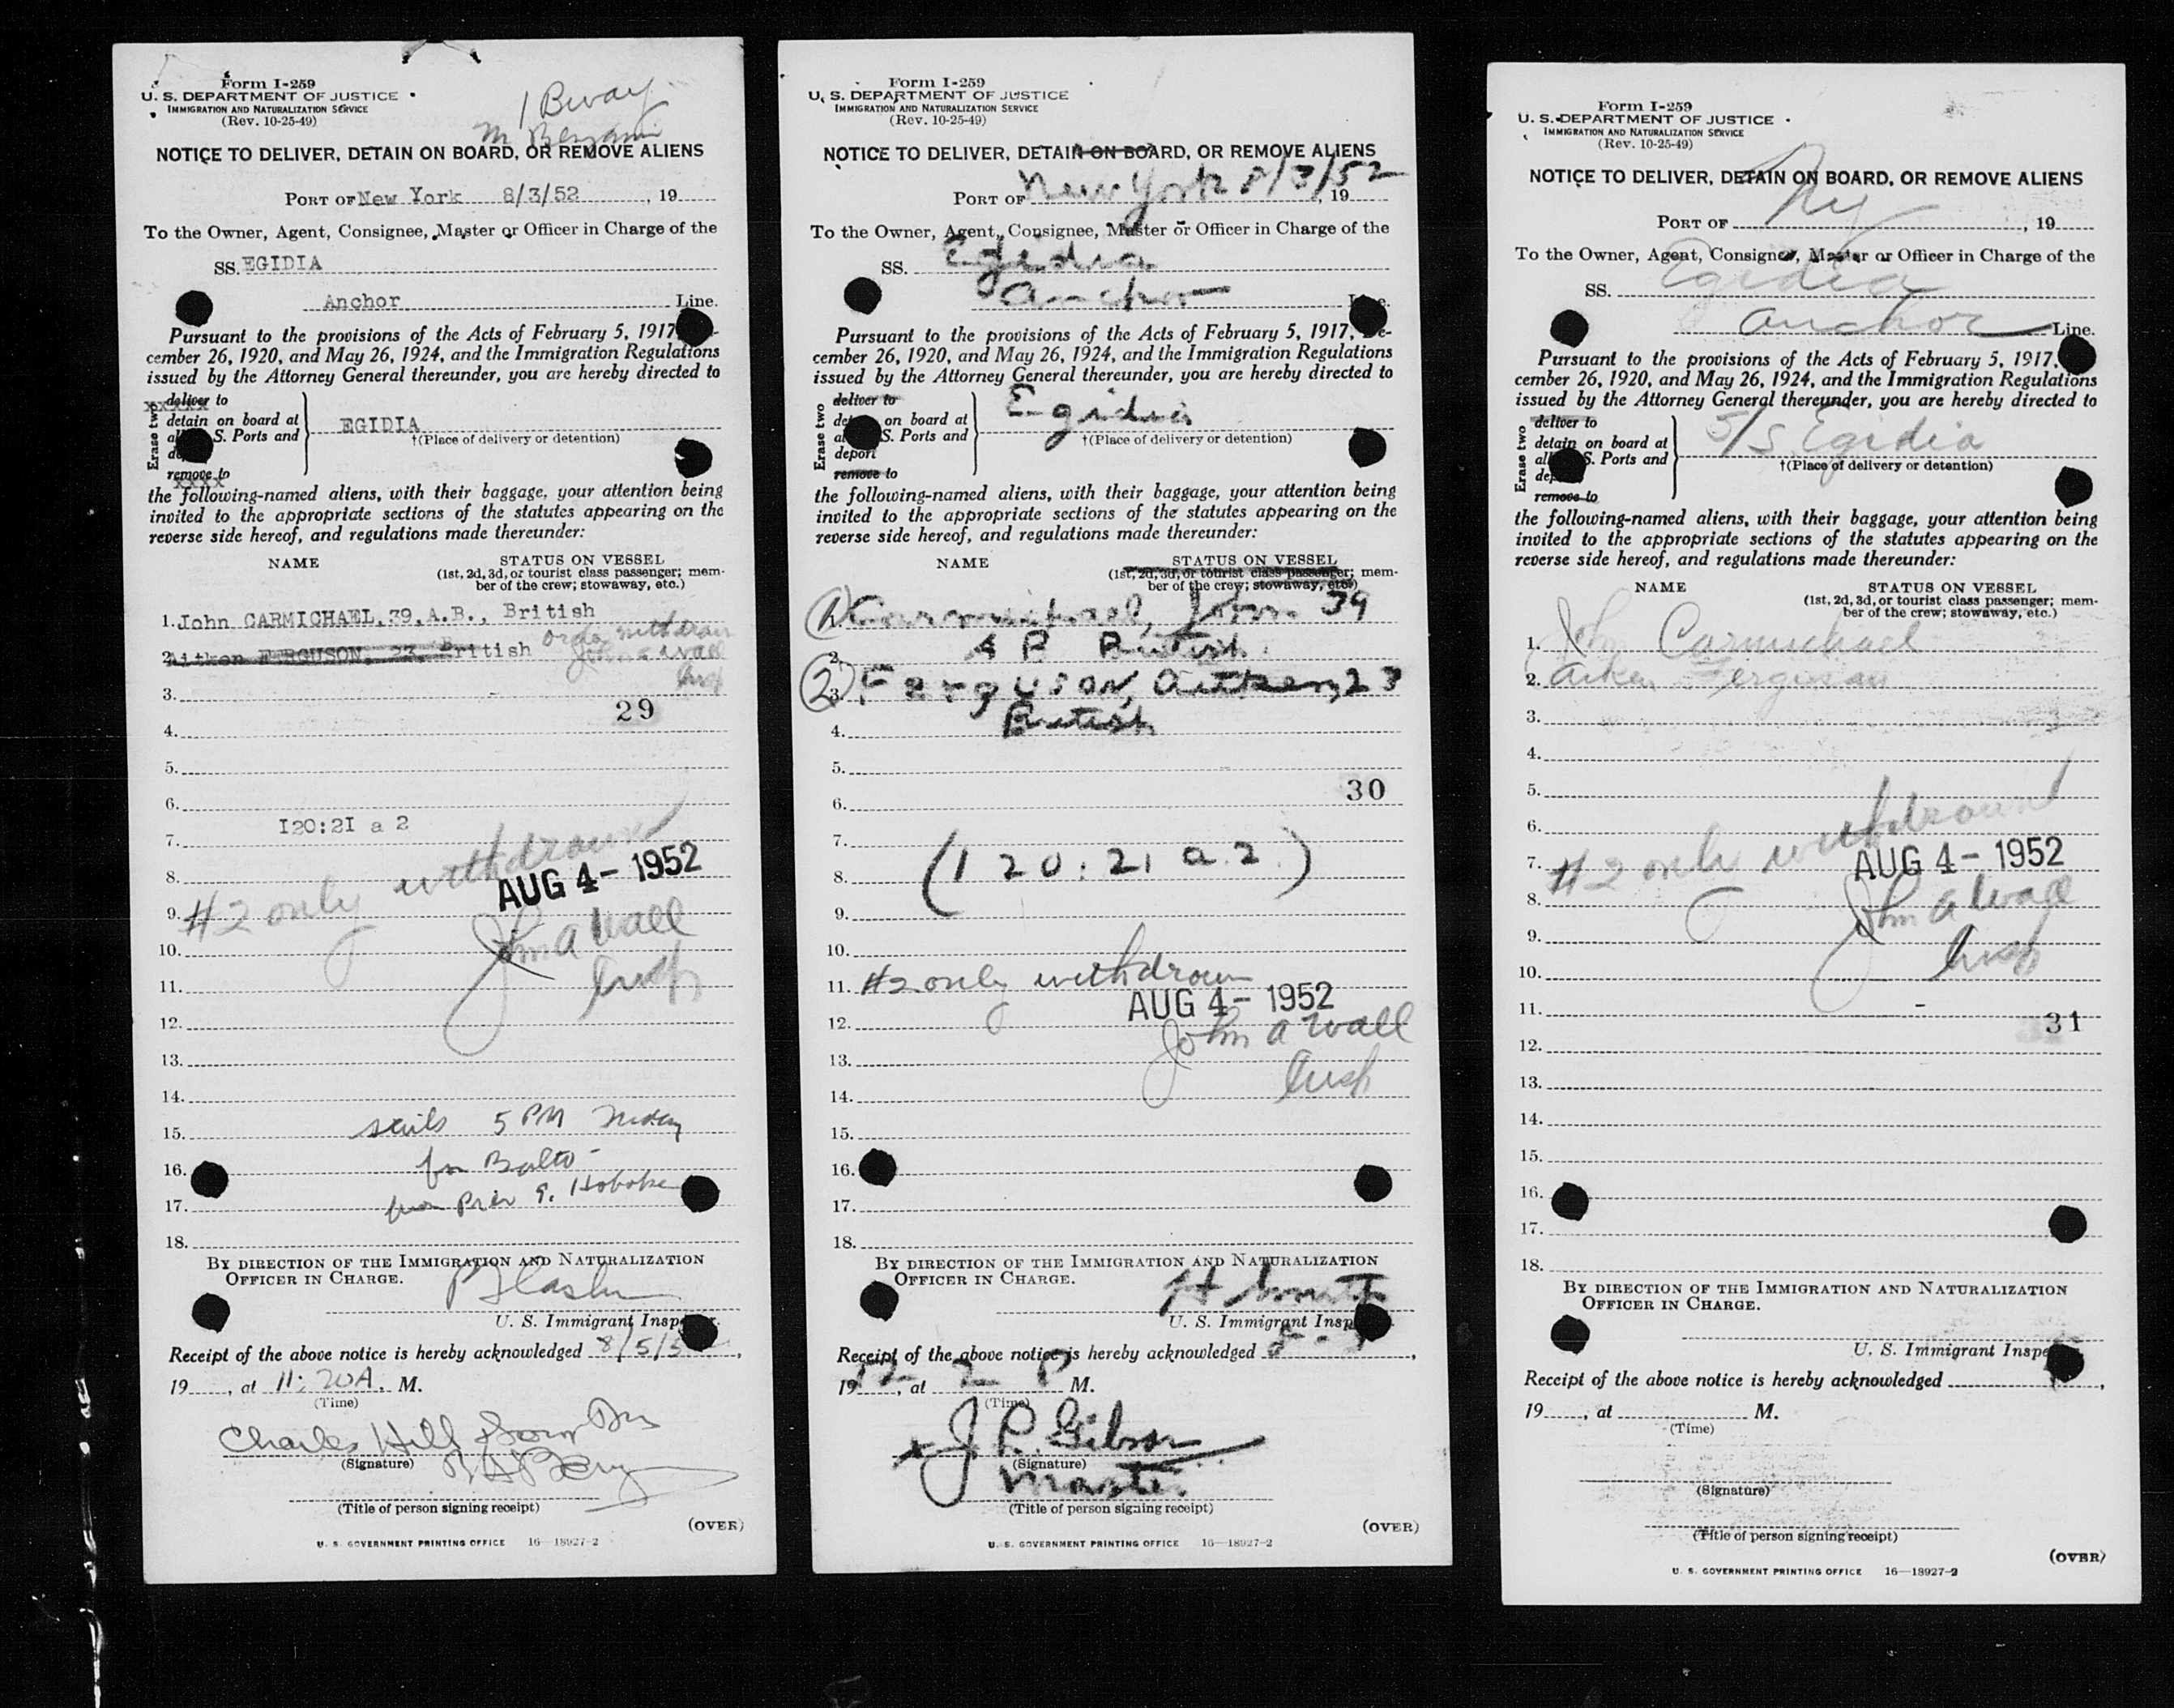 Form I-259
U. S. DEPARTMENT OF JUSTICE
IMMIGRATION AND NATURALIZATION SERVICE
(Rev. 10-25-49)
1 Bway
NOTICE TO DELIVER, DETAIN ON BOARD, OR REMOVE ALIENS
PORT OF New York 8/3/52, 19
To the Owner, Agent, Consignee, Master or Officer in Charge of the
SS. EGIDIA
Anchor Line.
Pursuant to the provisions of the Acts of February 5, 1917,
cember 26, 1920, and May 26, 1924, and the Immigration Regulations
issued by the Attorney General thereunder, you are hereby directed to
Erase two
deliver to
detain on board at
S. Ports and
remove to
EGIDIA
†(Place of delivery or detention)
the following-named aliens, with their baggage, your attention being
invited to the appropriate sections of the statutes appearing on the
reverse side hereof, and regulations made thereunder:
NAME STATUS ON VESSEL
(1st, 2d, 3d, or tourist class passenger; mem-
ber of the crew; stowaway, etc.)
1. John CARMICHAEL, 39, A.B., British
2. Aitken FERGUSON, 23, British
John A Wall
Insp
3.
29
4.
5.
6.
I20:2I a 2
7.
8. withdrawn
AUG 4- 1952
9. #2 only
John A Wall
10.
11. Insp
12.
13.
14.
15. sails 5 PM
16. for Balto-
17. from Pier 9. Hoboken
18.
BY DIRECTION OF THE IMMIGRATION AND NATURALIZATION
OFFICER IN CHARGE.
U. S. Immigrant Insp
Receipt of the above notice is hereby acknowledged 8/5/5
19, at 11:20 A. M.
(Time)
Charles Hill
(Signature)
(Title of person signing receipt)
(OVER)
U. S. GOVERNMENT PRINTING OFFICE 16—18927-2
Form I-259
U. S. DEPARTMENT OF JUSTICE
IMMIGRATION AND NATURALIZATION SERVICE
(Rev. 10-25-49)
NOTICE TO DELIVER, DETAIN ON BOARD, OR REMOVE ALIENS
PORT OF New York 8/3/52, 19
To the Owner, Agent, Consignee, Master or Officer in Charge of the
SS. Egidia
Anchor
Pursuant to the provisions of the Acts of February 5, 1917,
cember 26, 1920, and May 26, 1924, and the Immigration Regulations
issued by the Attorney General thereunder, you are hereby directed to
Erase two
deliver to
on board at
S. Ports and
deport
remove to
Egidia
†(Place of delivery or detention)
the following-named aliens, with their baggage, your attention being
invited to the appropriate sections of the statutes appearing on the
reverse side hereof, and regulations made thereunder:
NAME STATUS ON VESSEL
(1st, 2d, 3d, or tourist class passenger; mem-
ber of the crew; stowaway, etc.)
1. Carmichael, John 39
2. A B British
3. (2) Ferguson, Aitken, 23
British
4.
5.
30
6.
7.
8. (1 20:21 a.2.)
9.
10.
11. #2 only withdrawn
AUG 4- 1952
12. John A Wall
13. Insp
14.
15.
16.
17.
18.
BY DIRECTION OF THE IMMIGRATION AND NATURALIZATION
OFFICER IN CHARGE.
H Smith
U. S. Immigrant Insp
Receipt of the above notice is hereby acknowledged
1952, at 2 P M.
(Time)
x J. R. Gibson
(Signature)
Master
(Title of person signing receipt)
(OVER)
U. S. GOVERNMENT PRINTING OFFICE 16—18927-2
Form I-259
U. S. DEPARTMENT OF JUSTICE
IMMIGRATION AND NATURALIZATION SERVICE
(Rev. 10-25-49)
NOTICE TO DELIVER, DETAIN ON BOARD, OR REMOVE ALIENS
PORT OF Ny, 19
To the Owner, Agent, Consignee, Master or Officer in Charge of the
SS. Egidia
Anchor Line.
Pursuant to the provisions of the Acts of February 5, 1917,
cember 26, 1920, and May 26, 1924, and the Immigration Regulations
issued by the Attorney General thereunder, you are hereby directed to
Erase two
deliver to
detain on board at
S. Ports and
remove to
S/S Egidia
†(Place of delivery or detention)
the following-named aliens, with their baggage, your attention being
invited to the appropriate sections of the statutes appearing on the
reverse side hereof, and regulations made thereunder:
NAME STATUS ON VESSEL
(1st, 2d, 3d, or tourist class passenger; mem-
ber of the crew; stowaway, etc.)
1. John Carmichael
2. Aiken Ferguson
3.
4.
5.
6.
7. #2 only withdrawn
AUG 4- 1952
8. John A Wall
9.
10. Insp
11.
31
12.
13.
14.
15.
16.
17.
18.
BY DIRECTION OF THE IMMIGRATION AND NATURALIZATION
OFFICER IN CHARGE.
U. S. Immigrant Inspe
Receipt of the above notice is hereby acknowledged
19, at M.
(Time)
(Signature)
(Title of person signing receipt)
(OVER)
U. S. GOVERNMENT PRINTING OFFICE 16—18927-2